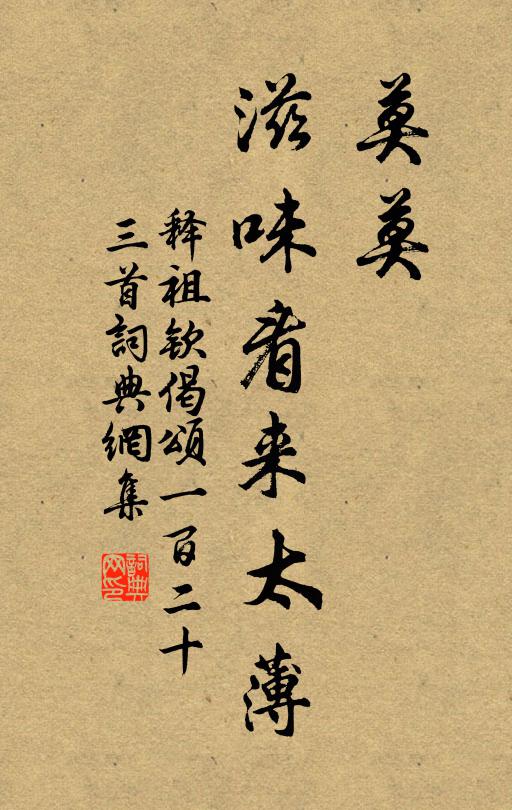 莫莫
滋味看来太薄
释祖钦偈頌一百二十
三首詞典網集
詞典
网印